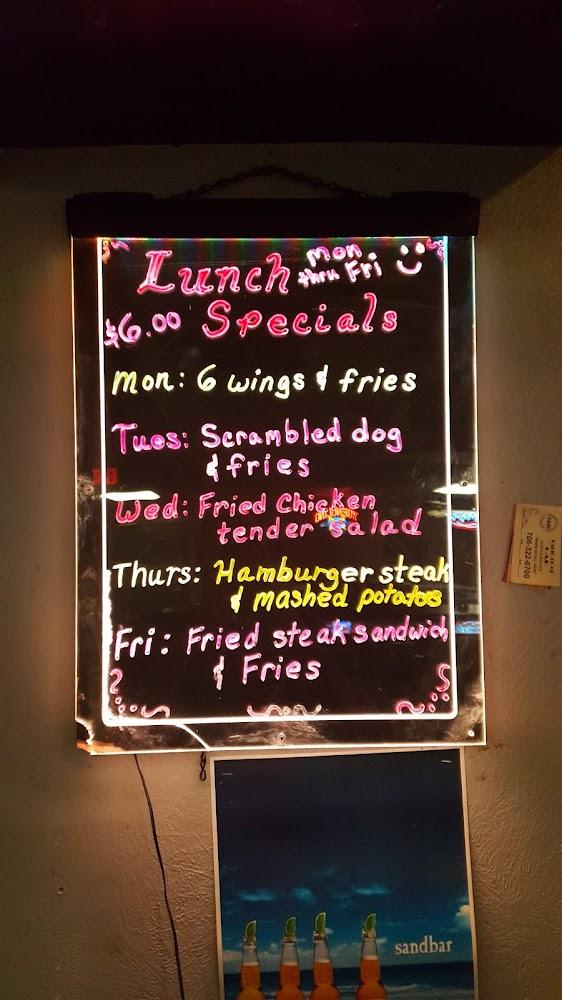 Lunch
Mon
thru Fri
$6.00 Specials
Mon: 6 wings & fries
Tues: Scrambled dog
& fries
Wed: Fried Chicken
tender salad
Thurs: Hamburger steak
& mashed potatoes
Fri: Fried steak sandwich
& Fries
706-322-0700
sandbar